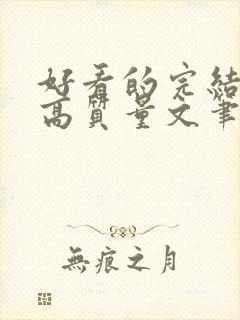 好看的完結
高質量文筆
無痕之月